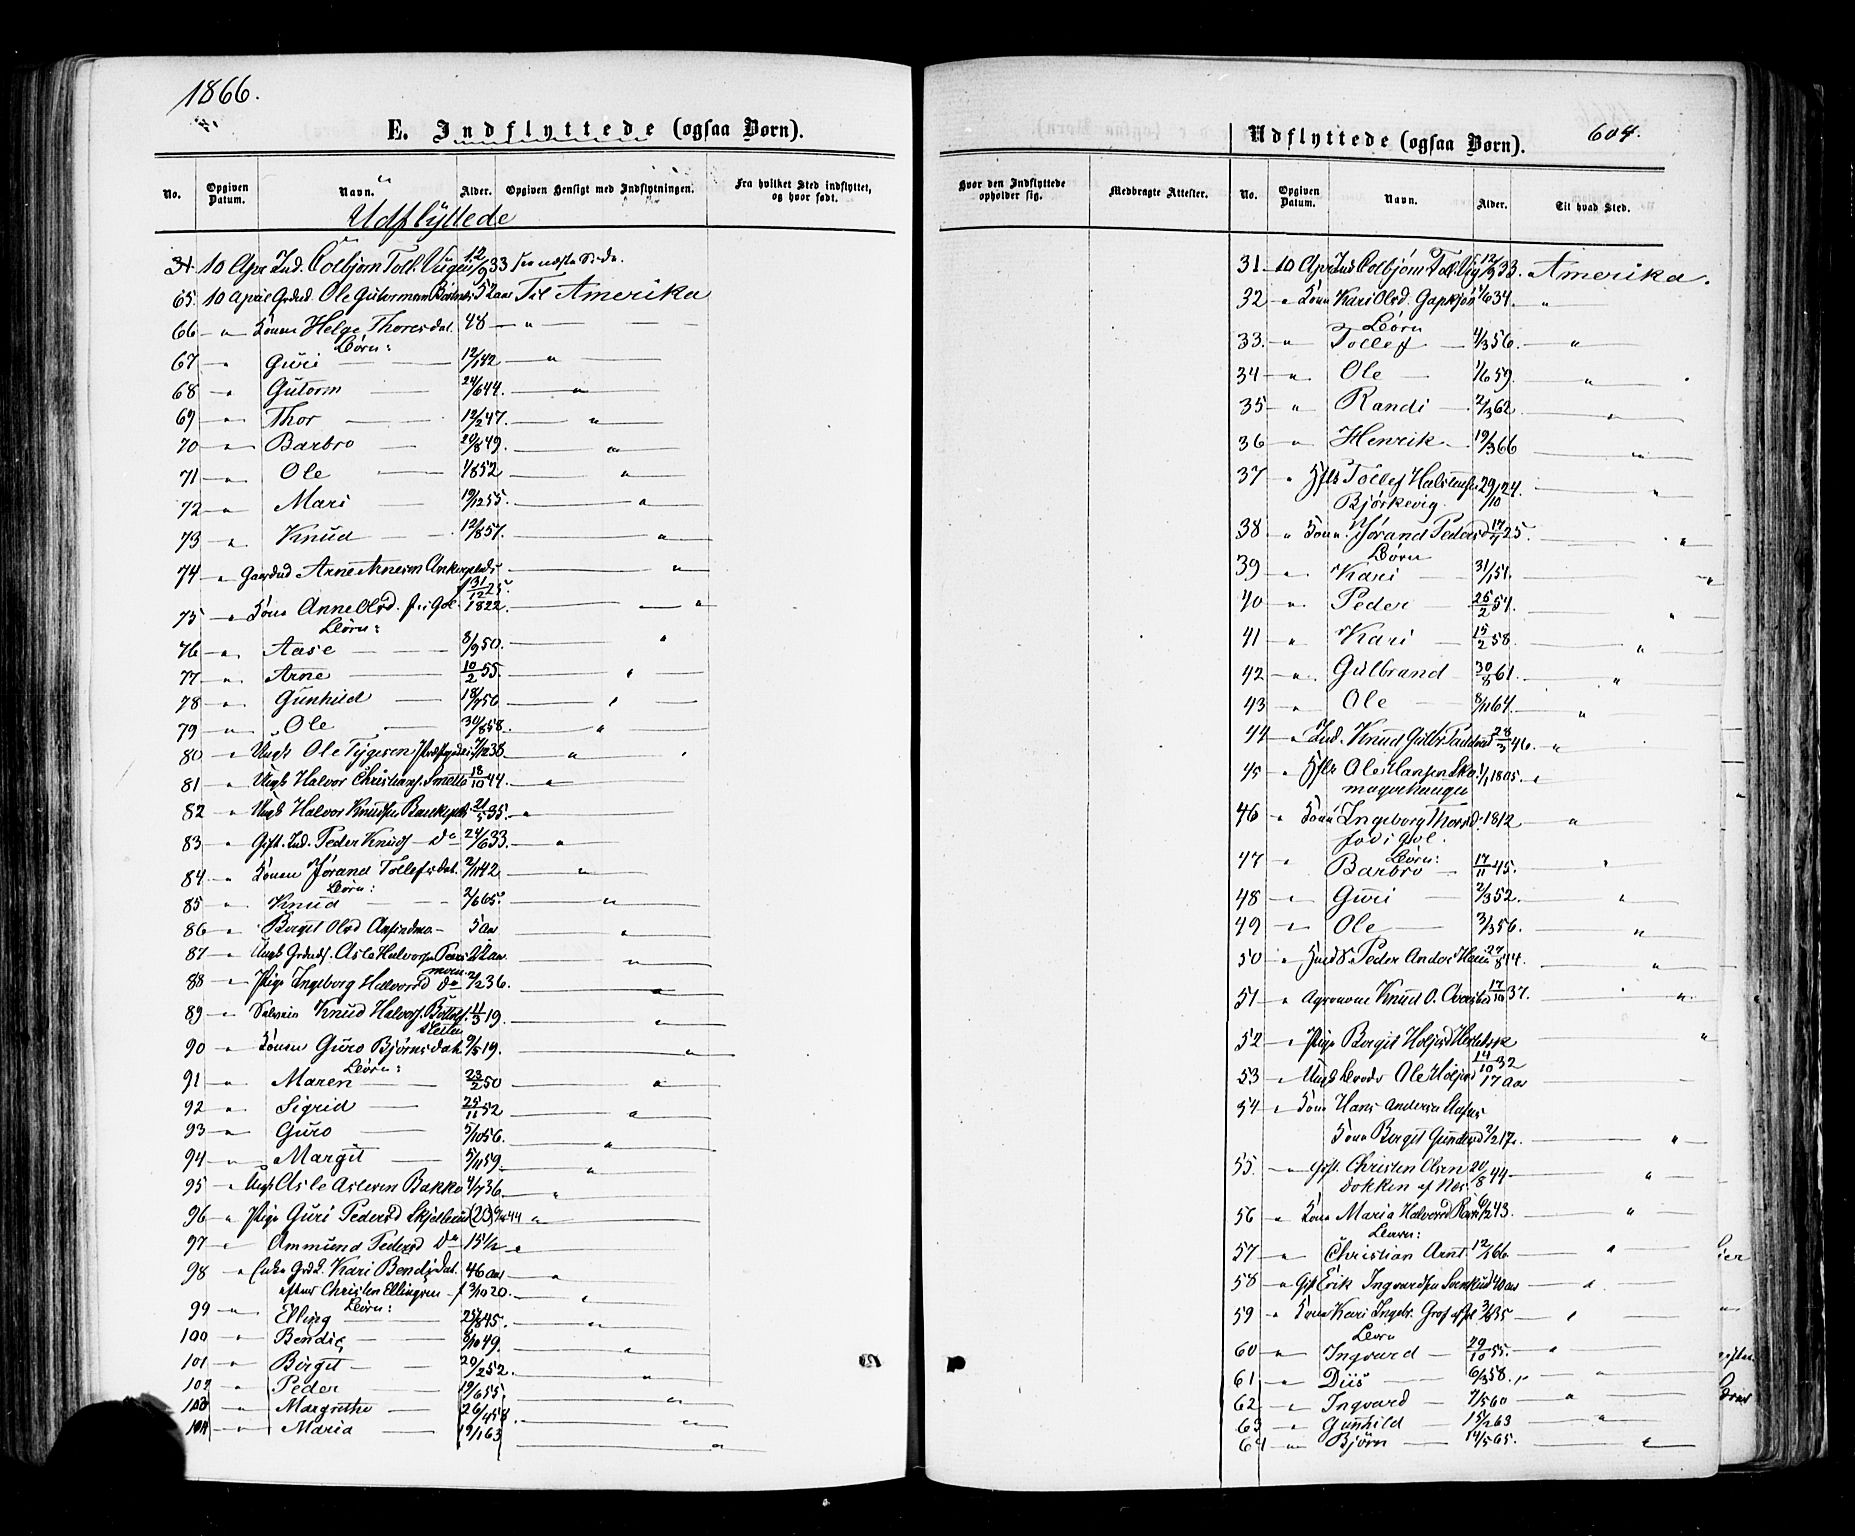 1866.
E. Indflyttede (ogsaa Børn).
No. Opgiven Datum. Navn. Alder. Opgiven Hensigt med Indflytningen. Fra hvilket Sted indflyttet, og hvor født.
Udflyttede
31. 10 Apr Ind. Colbjørn Toll. 12/9 33 see næste Side.
65 10 April Ole Gutormsen 52 aar Til Amerika
66 " Konen Helge Thoresdat. 48 "
Børn:
67 " Guri 12/1 42 "
68 " Gutorm 24/6 44. "
69 " Thor 12/2 47. "
70 " Barbro 20/8 49. "
71 " Ole 1/8 52 "
72 " Mari 19/12 55. "
73 " Knud 12/8 57. "
74 " Arne Arnesen "
31/12 25.
75 " Kone Anne Olsd. f. i Gol. 1822. "
Børn:
76 " Aase 8/9 50. "
77 " Arne 10/2 55. "
78 " Gunhild 18/7 56 "
79 " Ole 30/8 58. "
80 " Ungk Ole Tygesen 38 "
81 " Ungk Halvor Christians. 18/10 44. "
82 " Ungk Halvor Knudsen 21/5 35. "
83 " Gift. Ind. Peder Knuds. Do 24/6 33. "
84 " Konen Jørand Tollefsdat. 2/11 42. "
Børn:
85 " Knud 2/6 65. "
86 " Birgit Olsd 5 aar "
87 " Ungk Asle Halvors. 22 aar "
88 " Pige Ingeborg Halvorsd Do 2/2 36. "
89 " Knud Halvors. 11/3 19. "
90 " Konen Guro Bjørnsdat. 9/5 19. "
Børn:
91 " Maren 23/2 50 "
92 " Sigrid 25/11 52 "
93 " Guro 5/10 56. "
94 " Margit 5/11 59. "
95 " Ungk Asle Aslesen Bakke 4/7 36. "
96 " Pige Guri Pedersd (20) 44 "
97 " Ammund Peders Do 15 1/2 "
98 " Enke Kari Bendiksdat. 46 aar "
efter Christen Ellingsen f 3/10 20. "
99 " Børn: Elling 25/8 45. "
100 " Bendik 8/10 49. "
101 " Birgit 20/2 52. "
102 " Peder 19/6 55. "
103 " Margrethe 26/4 58 "
104 " Maria 19/1 63 "
Hvor den Indflyttede opholder sig. Medbragte Attester.
Udflyttede (ogsaa Børn). 604.
No. Opgiven Datum. Navn. Alder. Til hvad Sted.
31 10 Apr Ind Colbjørn Tol. 12/9 33. Amerika.
32 " Konen Kari Olsd. 1/6 34. "
Børn
33. " Tollef 4/3 56. "
34 " Ole 1/6 59. "
35 " Randi 2/3 62 "
36 " Henrik 19/3 66 "
37 " Tollef Halstens. 29/10 24. "
Bjørkevig.
38 " Konen Jørand Pedersd 17/4 25. "
Børn
39 " Kari 31/1 51. "
40 " Peder 26/2 54. "
41 " Kari 15/2 58. "
42 " Gulbrand 30/8 61. "
43 " Ole 8/11 64. "
44 " Ind. Knud Gulbr. 28/3 46. "
45 " Ole Hansen 1/1 1805. "
46 " Kone Ingeborg Thorsd. 1812 "
fød i Gol.
Børn:
47 " Barbro 17/11 45. "
48 " Guri 2/3 52. "
49 " Ole 3/3 56. "
50 " Peder Anders. 27/8 44. "
51 " Agronom Knud O. 17/10 37. "
52 " Pige Birgit "
14/10 32
53 " Ungk Ole 17 aar
54 " Hans Andersen
Kone Birgit Gundersd 3/2 17. "
55 " Gift. Christen Olsen 20/8 44 "
Dokken af Næs
56 " Kone Maria Halvorsd 43. "
Børn:
57 " Christian Arnt 12/1 66 "
58 " Gift Erik Ingvardsen 40 aar "
59 " Kone Kari Ingebr. 35 "
Børn
60 " Ingvard 29/10 55. "
61 " Diis 6/3 58. "
62 " Ingvard 7/5 60 "
63 " Gunhild 15/2 63 "
64 " Bjørn 14/5 65. "